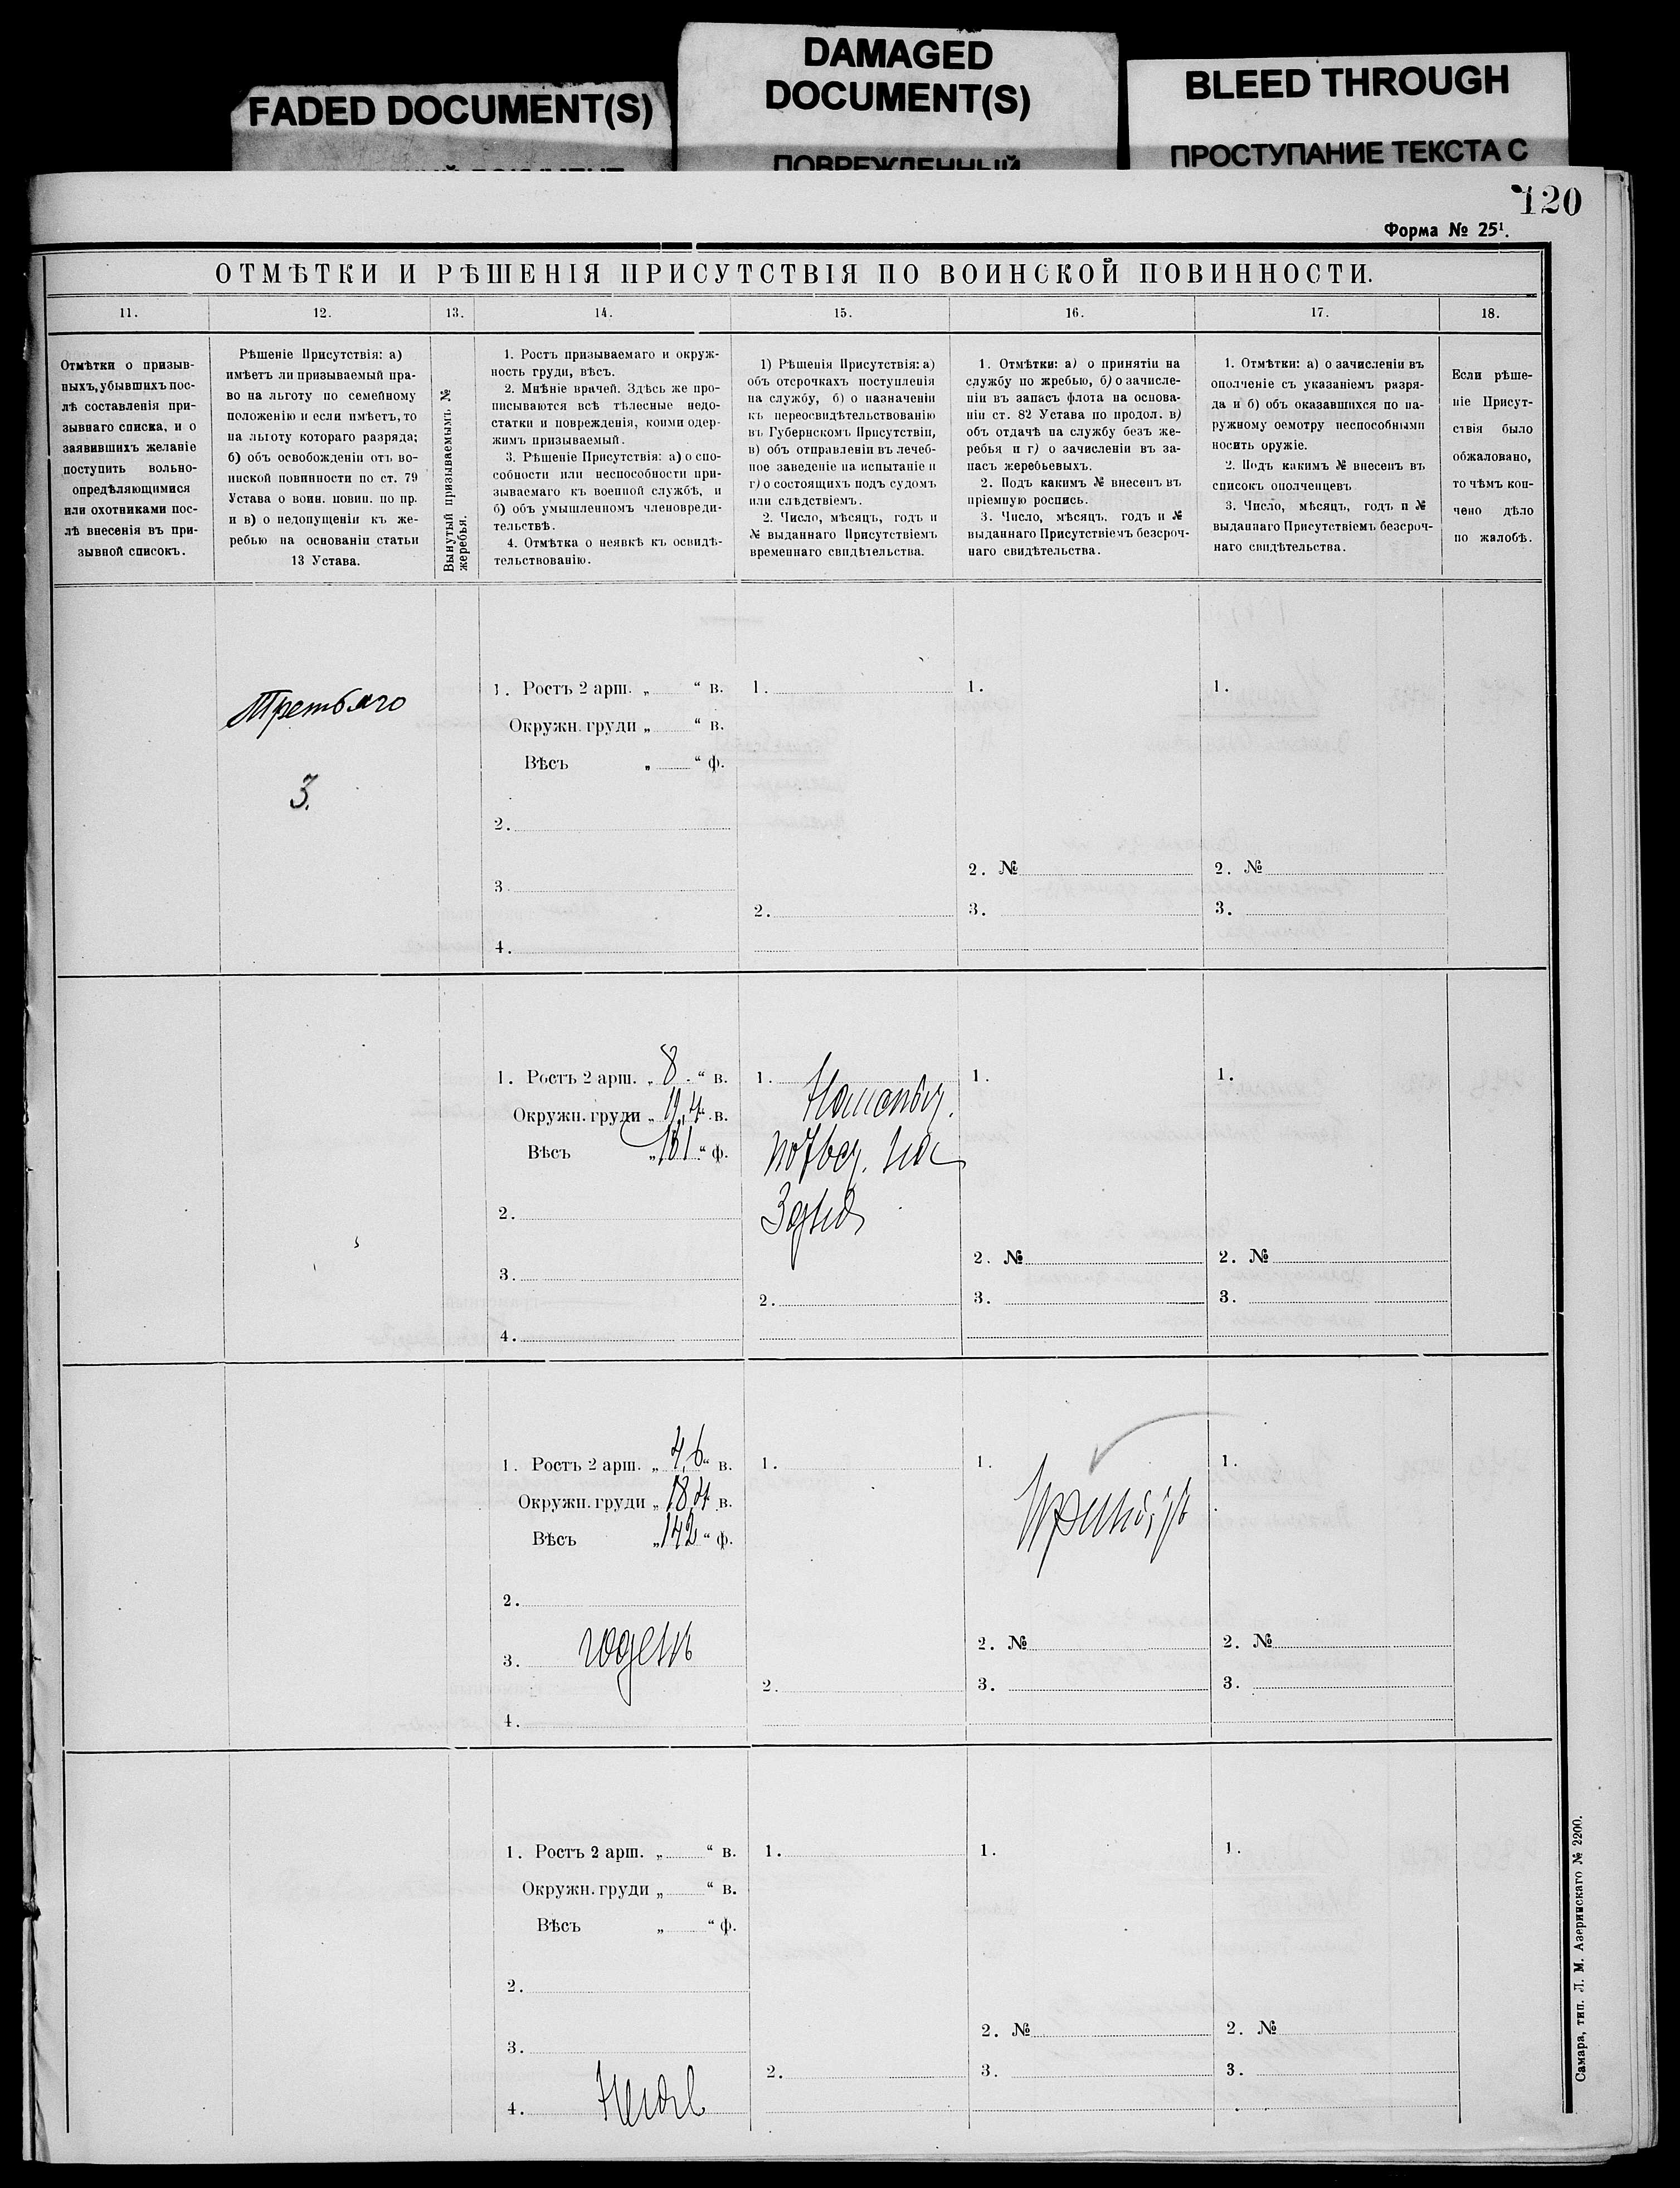 FADED DOCUMENT(S)
DAMAGED
DOCUMENT(S)
ПОВРЕЖДЕННЫЙ
BLEED THROUGH
ПРОСТУПАНИЕ ТЕКСТА С
120
Форма № 25¹.
ОТМѢТКИ И РѢШЕНІЯ ПРИСУТСТВІЯ ПО ВОИНСКОЙ ПОВИННОСТИ.
11. 12. 13. 14. 15. 16. 17. 18.
Отмѣтки о призыв-
ныхъ, убывшихъ пос-
лѣ составленія при-
зывнаго списка, и о
заявившихъ желаніе
поступить вольно-
опредѣляющимися
или охотниками пос-
лѣ внесенія въ при-
зывной списокъ.
Рѣшеніе Присутствія: а)
имѣетъ ли призываемый пра-
во на льготу по семейному
положенію и если имѣетъ, то
на льготу котораго разряда;
б) объ освобожденіи отъ во-
инской повинности по ст. 79
Устава о воин. повин. по пр.
и в) о недопущеніи къ же-
ребью на основаніи статьи
13 Устава.
Вынутый призываемымъ №
жеребья.
1. Ростъ призываемаго и окруж-
ность груди, вѣсъ.
2. Мнѣніе врачей. Здѣсь же про-
писываются всѣ тѣлесные недо-
статки и поврежденія, коими одер-
жимъ призываемый.
3. Рѣшеніе Присутствія: а) о спо-
собности или неспособности при-
зываемаго къ военной службѣ, и
б) объ умышленномъ членовреди-
тельствѣ.
4. Отмѣтка о неявкѣ къ освидѣ-
тельствованію.
1) Рѣшенія Присутствія: а)
объ отсрочкахъ поступленія
на службу, б) о назначеніи
къ переосвидѣтельствованію
въ Губернскомъ Присутствіи,
в) объ отправленіи въ лечеб-
ное заведеніе на испытаніе и
г) о состоящихъ подъ судомъ
или слѣдствіемъ.
2. Число, мѣсяцъ, годъ и
№ выданнаго Присутствіемъ
временнаго свидѣтельства.
1. Отмѣтки: а) о принятіи на
службу по жребью, б) о зачисле-
ніи въ запасъ флота на основа-
ніи ст. 82 Устава по продол. в)
объ отдачѣ на службу безъ же-
ребья и г) о зачисленіи въ за-
пасъ жеребьевыхъ.
2. Подъ какимъ № внесенъ въ
пріемную роспись.
3. Число, мѣсяцъ, годъ и №
выданнаго Присутствіемъ безсроч-
наго свидѣтельства.
1. Отмѣтки: а) о зачисленіи въ
ополченіе съ указаніемъ разря-
да и б) объ оказавшихся по на-
ружному осмотру неспособными
носить оружіе.
2. Подъ какимъ № внесенъ въ
списокъ ополченцевъ
3. Число, мѣсяцъ, годъ и №
выданнаго Присутствіемъ безсроч-
наго свидѣтельства.
Если рѣше-
ніе Присут-
ствія было
обжаловано,
то чѣмъ кон-
чено дѣло
по жалобѣ.
Третьяго
3.
1. Ростъ 2 арш. „ “ в.
Окружн. груди „ “ в.
Вѣсъ „ “ ф.
2.
3
4.
1.
2.
1.
2. №
3.
1.
2. №
3.
1. Ростъ 2 арш. „ 8 “ в.
Окружн. груди „ 19,4 “ в.
Вѣсъ „ 181 “ ф.
2.
3.
4.
1.
на
2.
1.
2. №
3.
1.
2. №
3.
1. Ростъ 2 арш. „ 4,6 “ в.
Окружн. груди „ 18,4 в.
Вѣсъ „ 142 “ ф.
2.
3. годенъ
4.
1.
2.
1.
Принятъ
2. №
3.
1.
2. №
3.
1. Ростъ 2 арш. „ “ в.
Окружн. груди „ “ в.
Вѣсъ „ “ ф.
2.
3.
4.
1.
2.
1.
2. №
3.
1.
2. №
3.
Самара, тип. Л. М. Азеринскаго № 2200.